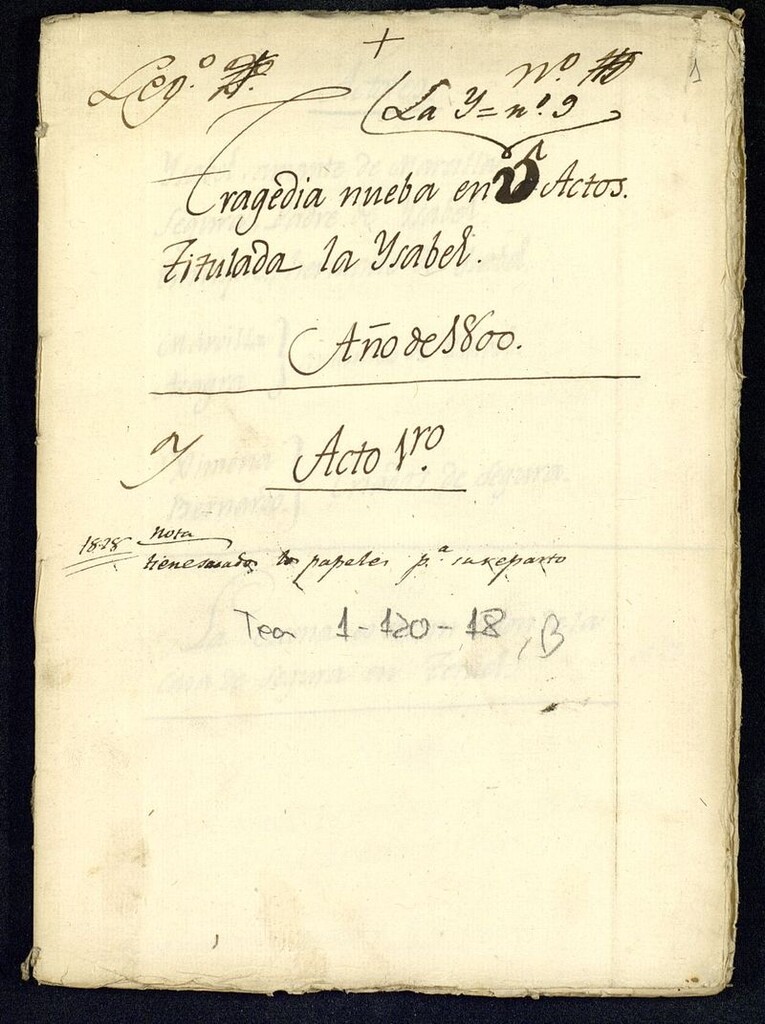 +
Leg.º
nº.
1
La Y = nº. 9
Tragedia nueba en 5 Actos.
Titulada la Ysabel.
Año de 1800.
Acto 1.ro
nota
1828 tiene sacados los papeles p.ª su reparto
Tea 1-120-18, B